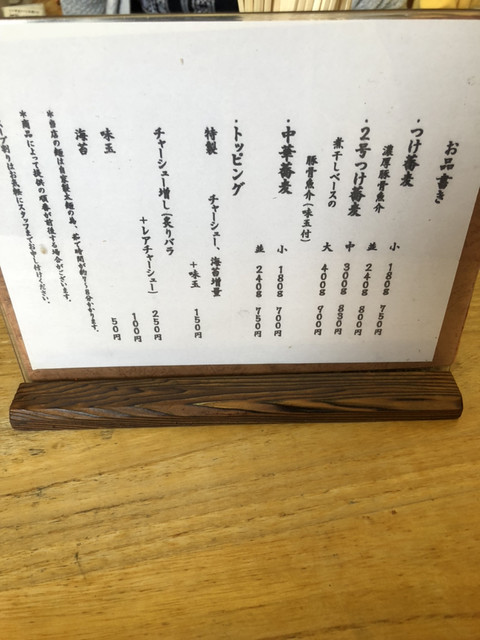 お品書き
・つけ蕎麦
濃厚豚骨魚介
小 180g 750円
並 240g 800円
・2号つけ蕎麦
中 300g 830円
煮干しベースの
大 400g 900円
豚骨魚介(味玉付)
・中華蕎麦
小 180g 700円
並 240g 750円
・トッピング
特製 チャーシュー、海苔増量
+味玉 150円
チャーシュー増し(炙りバラ
+レアチャーシュー) 250円
味玉 100円
海苔 50円
*当店の麺は自家製太麺の為、茹で時間が約7~8分かかります。
*商品によって提供の順番が前後する場合がございます。
スープ割りはお気軽にスタッフまでお申し付けください。